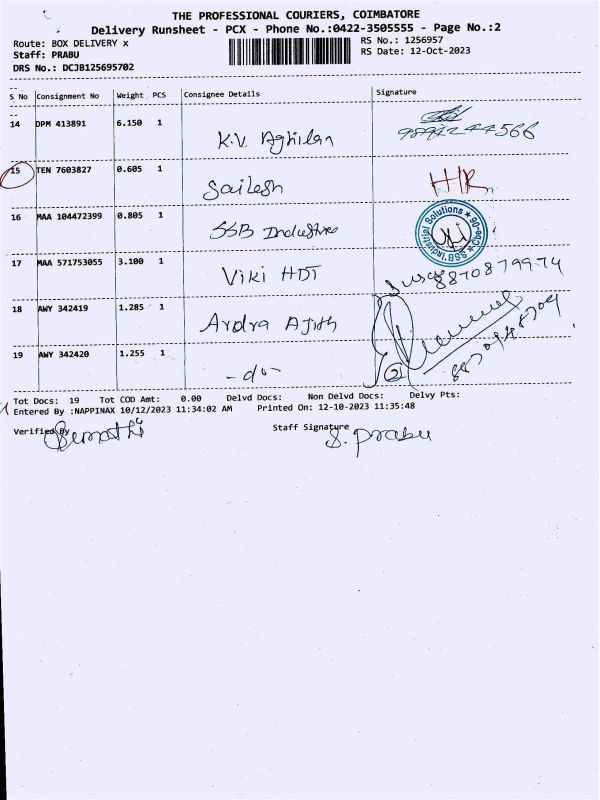 THE PROFESSIONAL COURIERS, COIMBATORE
Delivery Runsheet - PCX - Phone No.:0422-3505555 - Page No.:2
Route: BOX DELIVERY x
RS No.: 1256957
Staff: PRABU
RS Date: 12-Oct-2023
DRS No.: DCJB125695702
S No Consignment No Weight PCS Consignee Details Signature
14 DPM 413891 6.150 1 K.V. Aghilan
15 TEN 7603827 0.605 1 Sailesh HR
16 MAA 104472399 0.805 1 SSB Industries
SSB Industrial Solutions
17 MAA 571753055 3.100 1 Viki HDT
8870879974
18 AWY 342419 1.285 1 Ardra Ajith
19 AWY 342420 1.255 1 -do- 2
Tot Docs: 19 Tot COD Amt: 0.00 Delvd Docs: Non Delvd Docs: Delvy Pts:
Entered By :NAPPINAX 10/12/2023 11:34:02 AM Printed On: 12-10-2023 11:35:48
Verified By
Staff Signature
S. Prabu